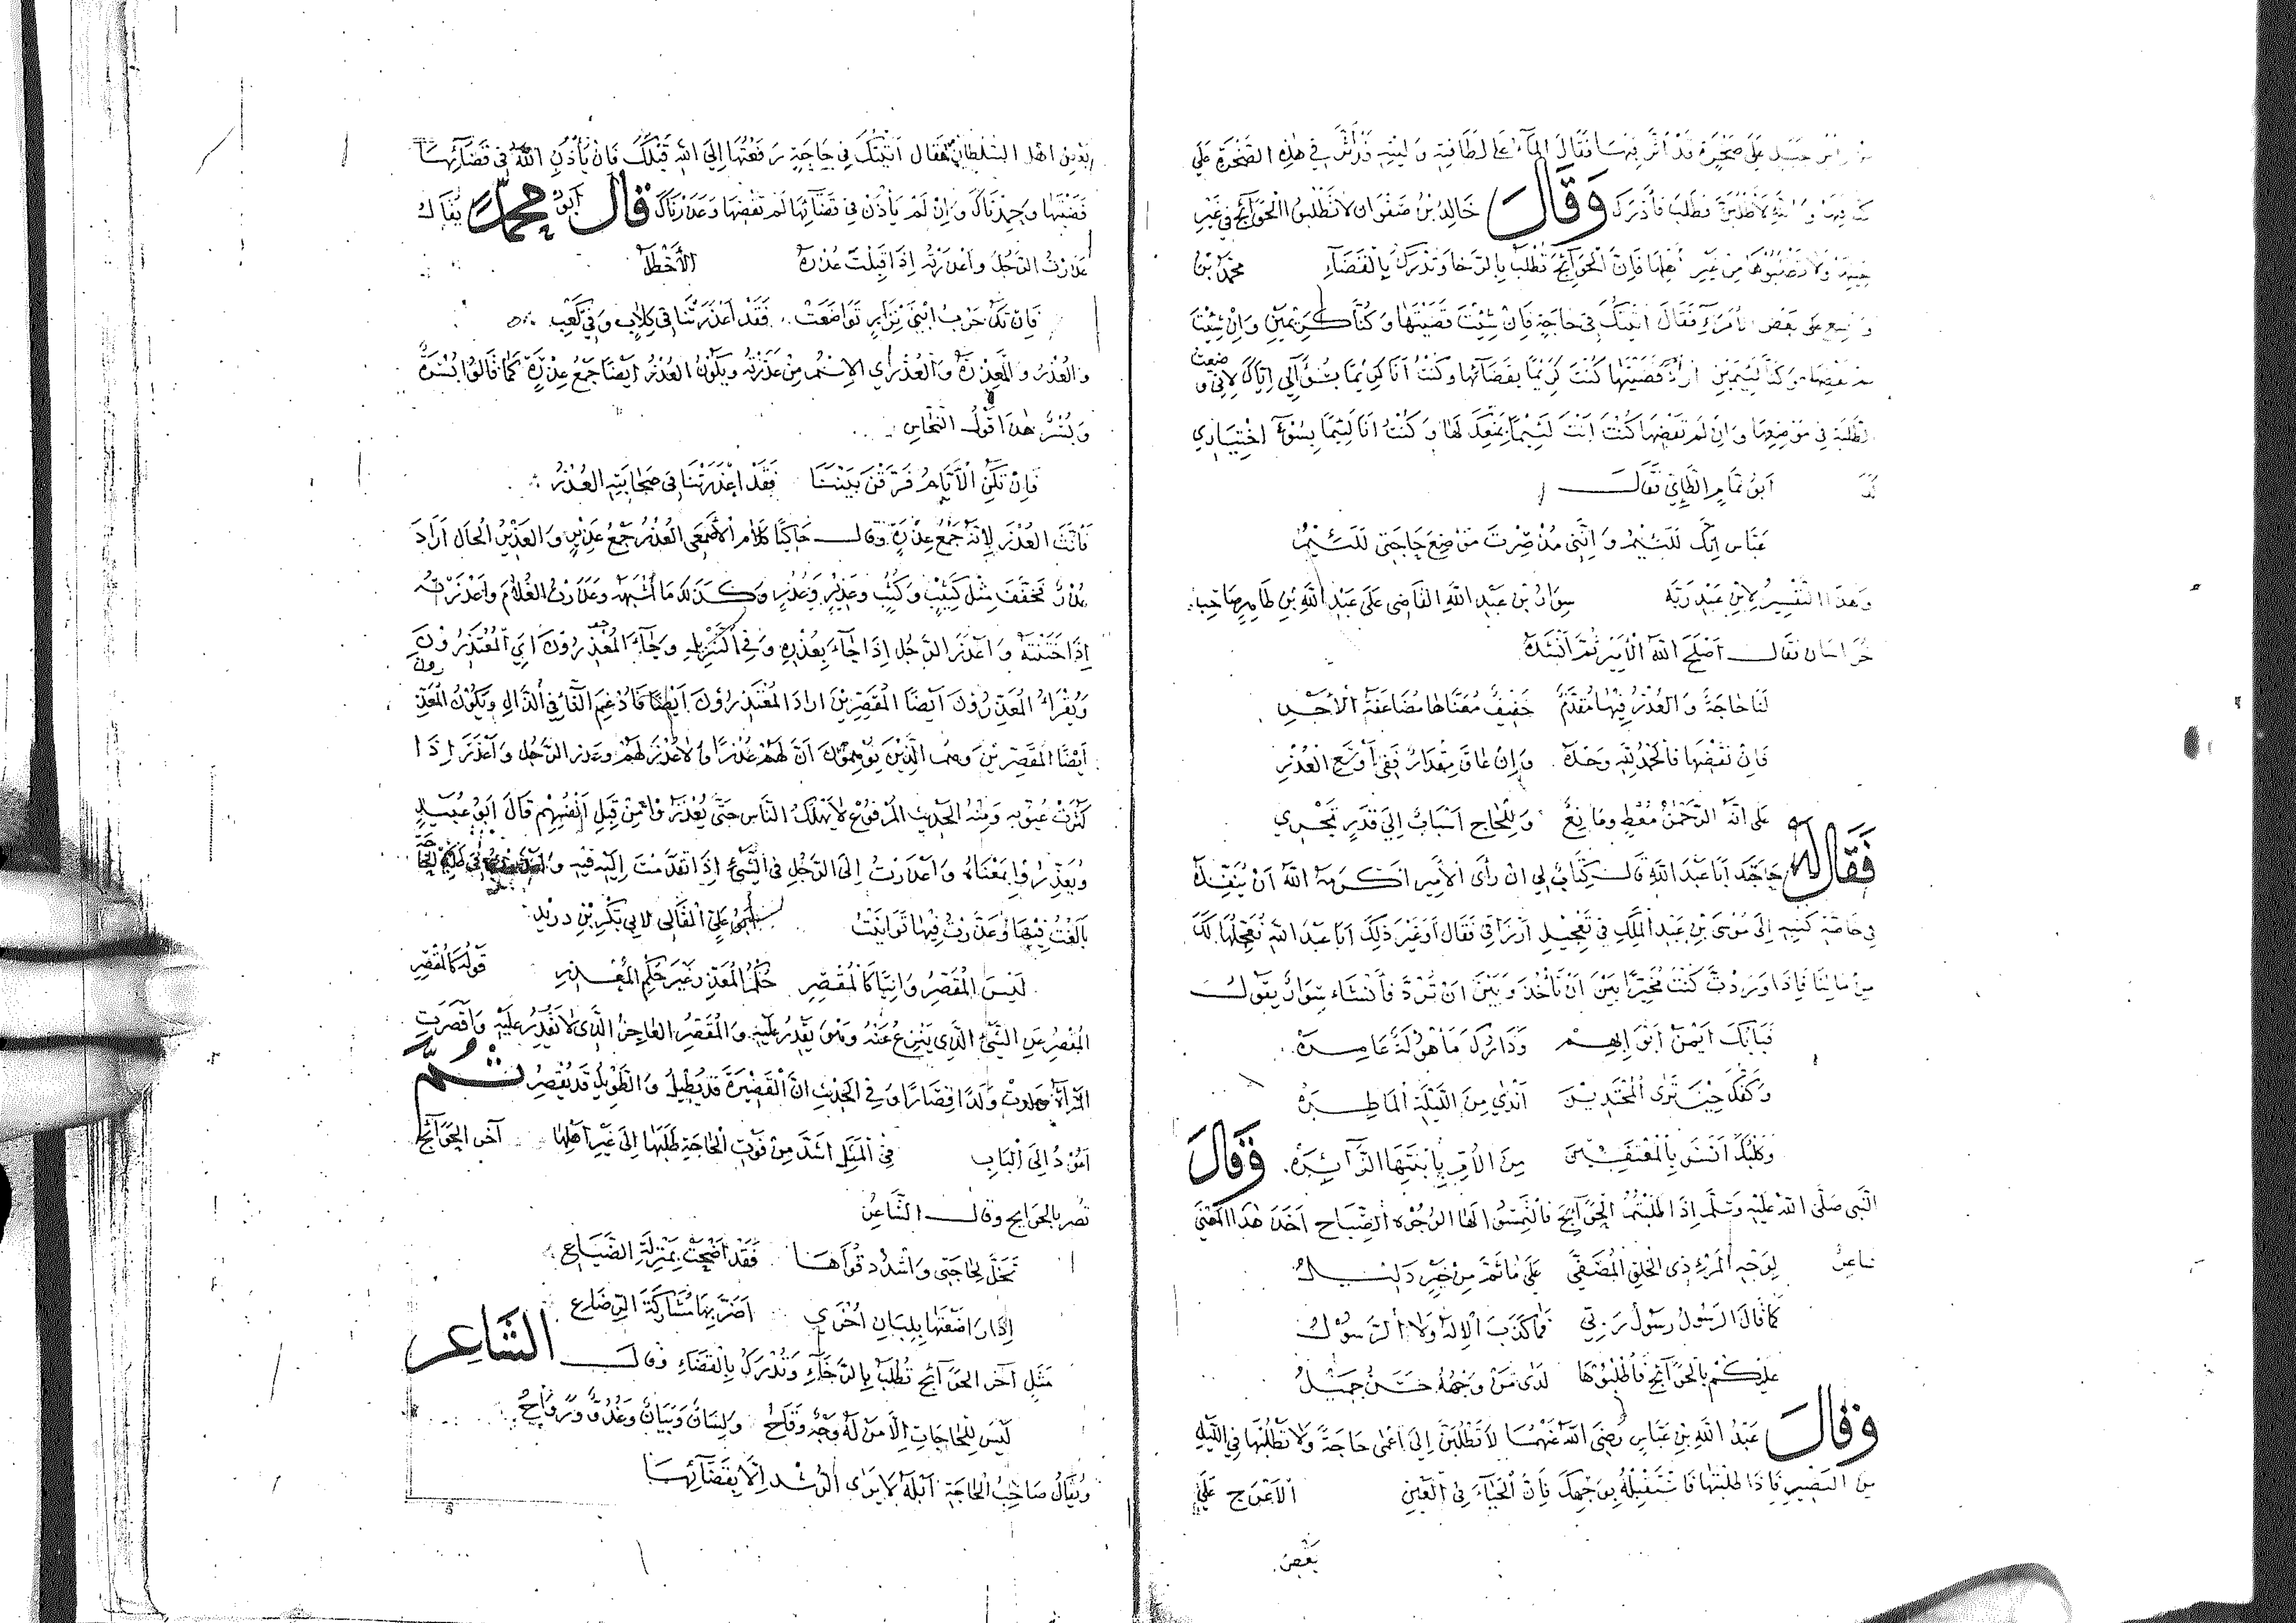 على صخرة قد أثر فيها فقال الماء على لطافته ولينه قد أثر في هذه الصخرة على
والله لأطلبن فطلب فأدرك وَقَالَ خالد بن صفوان لا تطلبوا الحوائج في غير
ولا تطلبوها من غير أهلها فإن الحوائج تطلب بالرجا وتدرك بالقضاء محمد بن
واسع على بعض الأمراء فقال أتيتك في حاجة فإن شئت قضيتها وكنا كريمين وإن شئت
لم تقضها وكنا لئيمين أراد إن قضيتها كنت كريما بقضائها وكنت أنا كريما بسؤالي إياك لأني وضعت
الطلبة في موضعها وإن لم تقضها كنت أنت لئيما بمنعك لها وكنت أنا لئيما بسوء اختياري
أبو تمام الطائي فقال
عياش إنك للئيم وإنني مذ صرت موضع حاجتي للئيم
وهذا التفسير لابن عبد ربه سوار بن عبد الله القاضي على عبد الله بن طاهر صاحب
خراسان فقال أصلح الله الأمير ثم أنشده
لنا حاجة والعذر فيها مقدم خفيف معناها مضاعفة الأجر
فإن تقضها فالحمد لله وحده وإن عاق مقدار ففي أوسع العذر
على أنه الرحمن معط ومانع وللحاج أسباب إلى قدر تجري
فَقَالَ له حاجتك أبا عبد الله قال كتاب لي إن رأى الأمير أكرمه الله أن ينفذه
في خاصة كتبه إلى موسى بن عبد الملك في تعجيل أرزاقي فقال أو غير ذلك أبا عبد الله نعجلها لك
من مالنا فإذا وردت كنت مخيرا بين أن تأخذ وبين أن ترد فأنشاء سوار يقول
فبابك أيمن أبوابهم ودارك مأهولة عامره
وكفك حين ترى المجتدين أندى من الليلة الماطره
وكلبك آنس بالمعتفين من الأم بابنتها الزائره وَقَالَ
النبي صلى الله عليه وسلم إذا طلبتم الحوائج فالتمسوا لها الوجوه الصباح أخذ هذا المعنى
شاعر لوجه المرء ذي الخلق المصفى على ما ثم من خير دليل
كما قال الرسول رسول ربي فما كذب الإله ولا الرسول
عليكم بالحوائج فاطلبوها لدى من وجهه حسن جميل
وَقَالَ عبد الله بن عباس رضي الله عنهما لا تطلبن إلى أعمى حاجة ولا تطلبها في الليل
من البصير فإذا طلبتها فاستقبله بوجهك فإن الحياء في العين الأعرج على
بعض
من أهل السلطان فقال أتيتك في حاجة رفعتها إلى الله قبلك فإن يأذن الله في قضائها
قضيتها وحمدناك وإن لم يأذن في قضائها لم تقضها وعذرناك قال أبو محمد يقال
عذرت الرجل وأعذرته إذا قبلت عذره الأخطل
فإن تك حرب ابني نزار تواضعت فقد أعذرتنا في كلاب وفي كعب
والعذر والمعذرة والعذرى الاسم من عذرته ويكون العذر أيضا جمع عذرة كما قالوا بسرة
وبسر هذا قول النحاس
فإن تكن الأيام فرقن بيننا فقد أعذرتنا في صحابته العذر
فأنث العذر لأنه جمع عذرة وقال حاكيا كلام الأصمعي العذر جمع عذير والعذير الحال أراد
عذر فخفف مثل كثيب وكثب وعذير وعذر وكذلك ما أشبهه وعذرت الغلام وأعذرته
إذا ختنته وأعذر الرجل إذا جاء بعذره وفي التنزيل وجاء المعذرون أي المعتذرون
ويقراء المعذرون أيضا المقصرين أراد المعتذرون أيضا فأدغم التاء في الذال ويكون المعذرون
أيضا المقصرين وهم الذين يوهمون أن لهم عذرا ولا عذر لهم وعذر الرجل وأعذر إذا
كثرت عيوبه ومنه الحديث المرفوع لا يهلك الناس حتى يعذروا من قبل أنفسهم قال أبو عبيد
ويعذروا بمعناه وأعذرت إلى الرجل في الشيء إذا تقدمت إليه فيه
بالغت فيها وعذرت فيها توانيت أبو علي القالي لأبي بكر بن دريد
ليس المقصر وانيا كالمقصر حكم المعذر غير حكم المعذر قوله كالمقصر
المقصر عن الشيء الذي ينزع عنه وهو يقدر عليه والمقصر العاجز الذي لا يقدر عليه وأقصرت
المرأة ولدت ولدا قصارا وفي الحديث إن القصيرة قد تطيل والطويل قد يقصر ثُمَّ
أعود إلى الباب في المثل أشد من فوت الحاجة طلبها إلى غير أهلها آخر الحوائج
بالحوائج وقال الشاعر
تخل لحاجتي واشدد قواها فقد أضحت بمنزلة الضياع
إذا راضعتها بلبان أخرى أضر بها مشاركة الرضاع
مثل آخر الحوائج تطلب بالرجاء وتدرك بالقضاء وقال الشاعر
ليس للحاجات إلا من له وجه وقاح ولسان وبيان وغدو ورواح
ويقال صاحب الحاجة أبله لا يرى الرشد إلا بقضائها